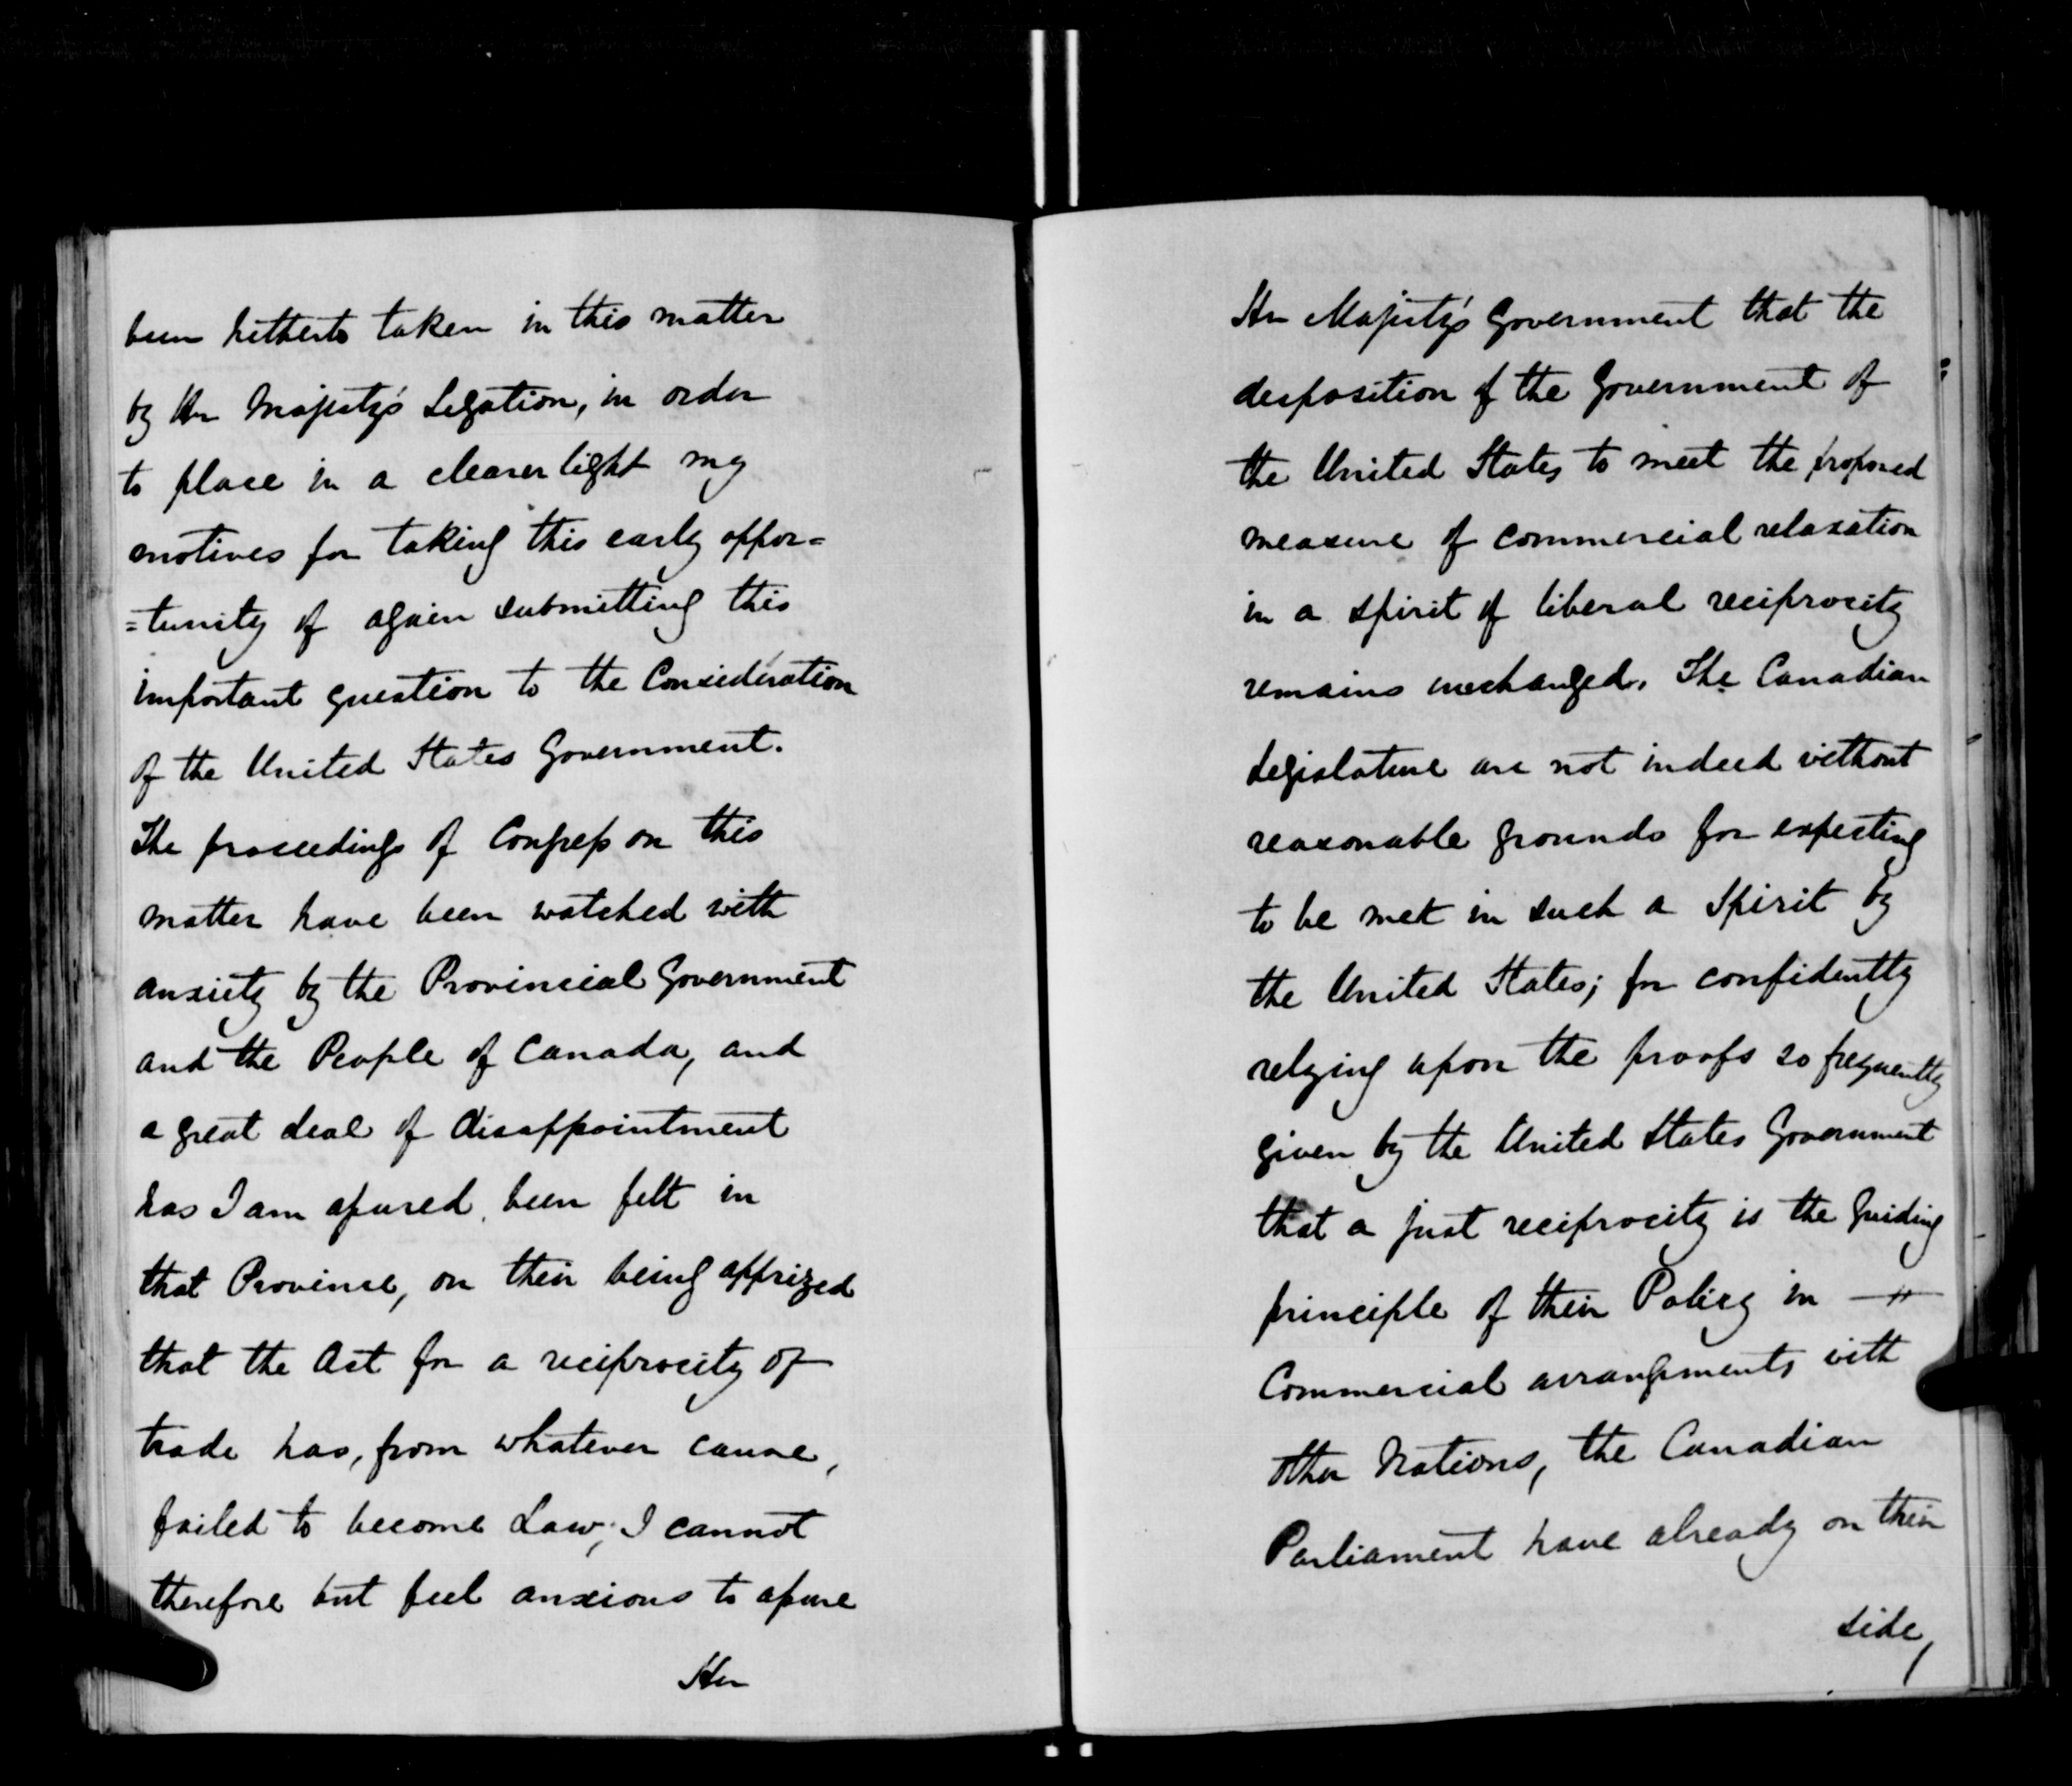 been hitherto taken in this matter
by Her Majesty's Legation, in order
to place in a clearer light my
motives for taking this early oppor=
=tunity of again submitting this
important question to the Consideration
of the United States Government.
The proceedings of Congress on this
matter have been watched with
anxiety by the Provincial Government
and the People of Canada, and
a great deal of disappointment
has I am assured, been felt in
that Province, on their being apprized
that the Act for a reciprocity of
trade has, from whatever cause,
failed to become Law; I cannot
therefore but feel anxious to assure
Her
Her Majesty's Government that the
desposition of the Government of
the United States to meet the proposed
measure of commercial relaxation
in a spirit of liberal reciprocity
remains unchanged. The Canadian
Legislature are not indeed without
reasonable grounds for expecting
to be met in such a Spirit by
the United States; for confidently
relying upon the proofs so frequently
given by the United States Government
that a just reciprocity is the Guiding
principle of their Policy in
Commercial arrangements with
other Nations, the Canadian
Parliament have already on their
side,